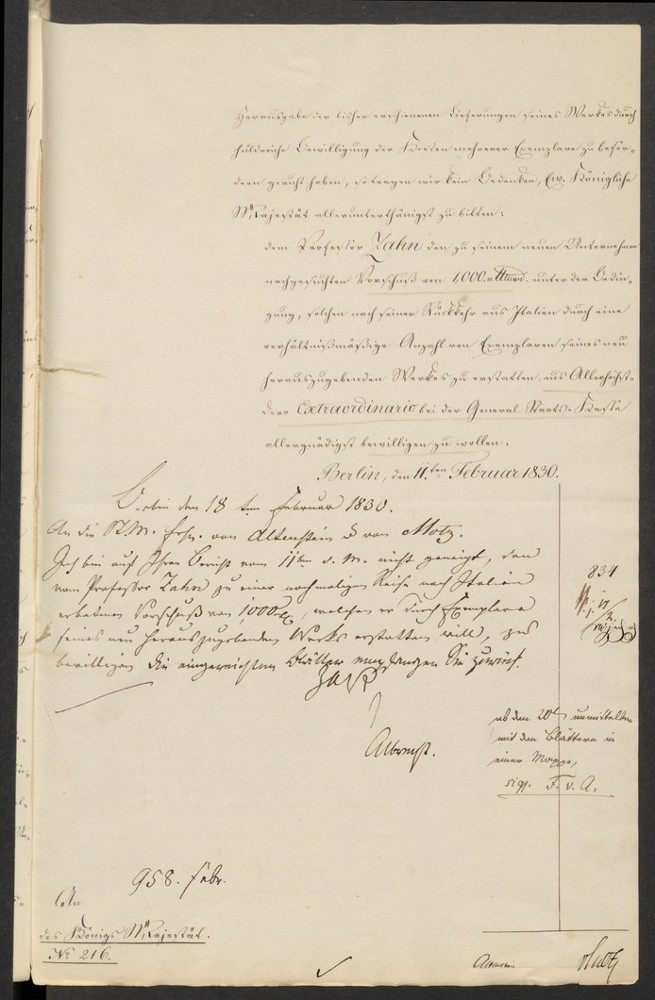 Herausgabe der bisher erschienenen Lieferungen seines Werkes durch
huldreiche Bewilligung der Kosten mehrerer Exemplare zu beför-
dern geruht haben, so tragen wir kein Bedenken, Ew. Königliche
Majestät allerunterthänigst zu bitten:
dem Professor Zahn den zu seinem neuen Unternehmen
nachgesuchten Vorschuß von 1,000 unter der Bedin-
gung, solchen nach seiner Rückkehr aus Italien durch eine
verhältnißmäßige Anzahl von Exemplaren seines neu
herauszugebenden Werkes zu erstatten, aus Allerhöchst-
dero Extraordinario bei der General Staats-Kasse
allergnädigst bewilligen zu wollen.
Berlin, den 11.ten Februar 1830.
Berlin den 18 ten Februar 1830.
An die St.M. Frhr. von Altenstein & von Motz.
Ich bin auf Ihren Bericht vom 11ten d. M. nicht geneigt, den
vom Professor Zahn zu einer nochmaligen Reise nach Italien
erbetenen Vorschuß von 1000, welchen er durch Exemplare
seines neu herauszugebenden Werks erstatten will, zu
bewilligen. Die eingereichten Blätter empfangen Sie zurück.
Albrecht.
834
ab den 20t unmittelbar
mit den Blättern in
einer Mappe,
sigs. F. v. A.
958. Febr.
An
des Königs Majestät.
No 216.
Altenstein
Motz